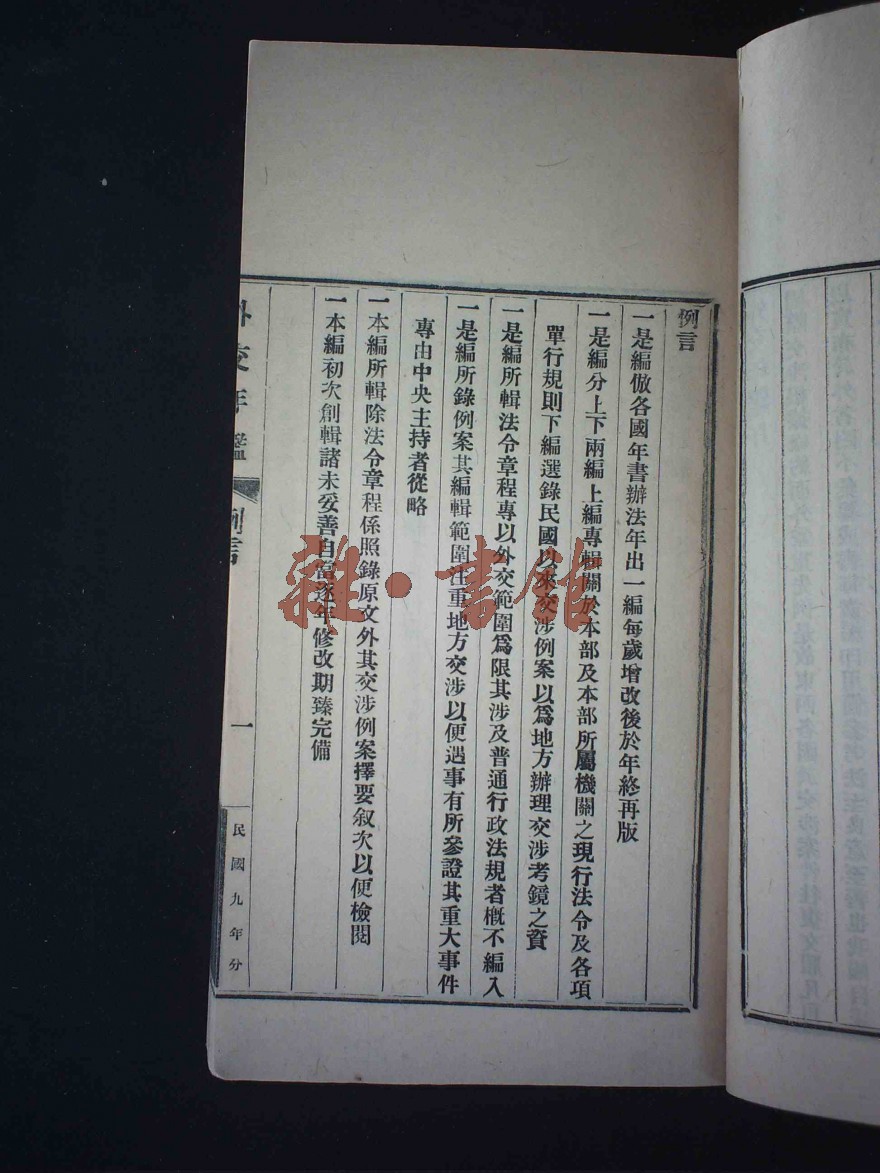 例言
一是編倣各國年書辦法年出一編每歲增改後於年終再版
一是編分上下兩編上編專輯關於本部及本部所屬機關之現行法令及各項
單行規則下編選錄民國以來交涉例案以爲地方辦理交涉考鏡之資
一是編所輯法令章程專以外交範圍爲限其涉及普通行政法規者槪不編入
一是編所錄例案其編輯範圍注重地方交涉以便遇事有所參證其重大事件
專由中央主持者從略
一本編所輯除法令章程係照錄原文外其交涉例案擇要叙次以便檢閱
一本編初次創輯諸未妥善自當逐年修改期臻完備
外交年鑑 例言 一 民國九年分
雜·書館